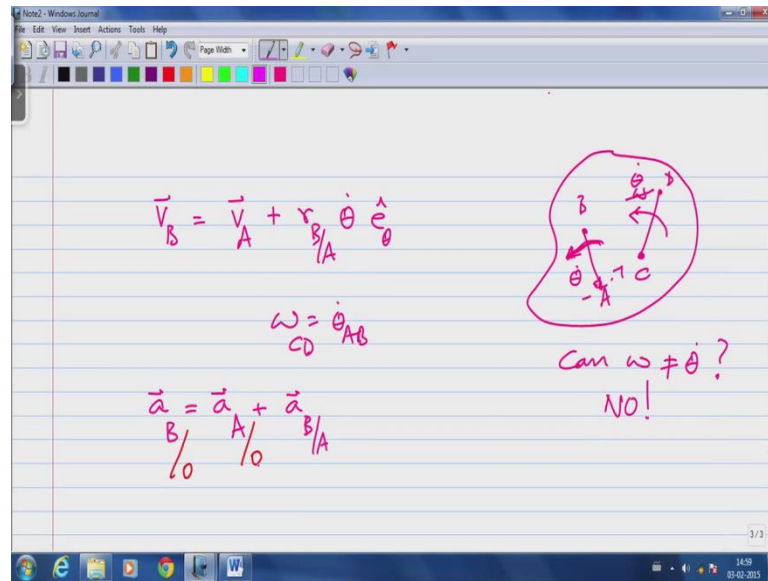 Note2 - Windows Journal
File Edit View Insert Actions Tools Help
Page Width
V⃗_B = V⃗_A + r_{B/A} θ̇ ê_θ
ω_{CD} = θ̇_{AB}
a⃗_{B/O} = a⃗_{A/O} + a⃗_{B/A}
θ̇ D
B
θ̇ C
A
Can ω ≠ θ̇ ?
NO!
3/3
14:59
03-02-2015